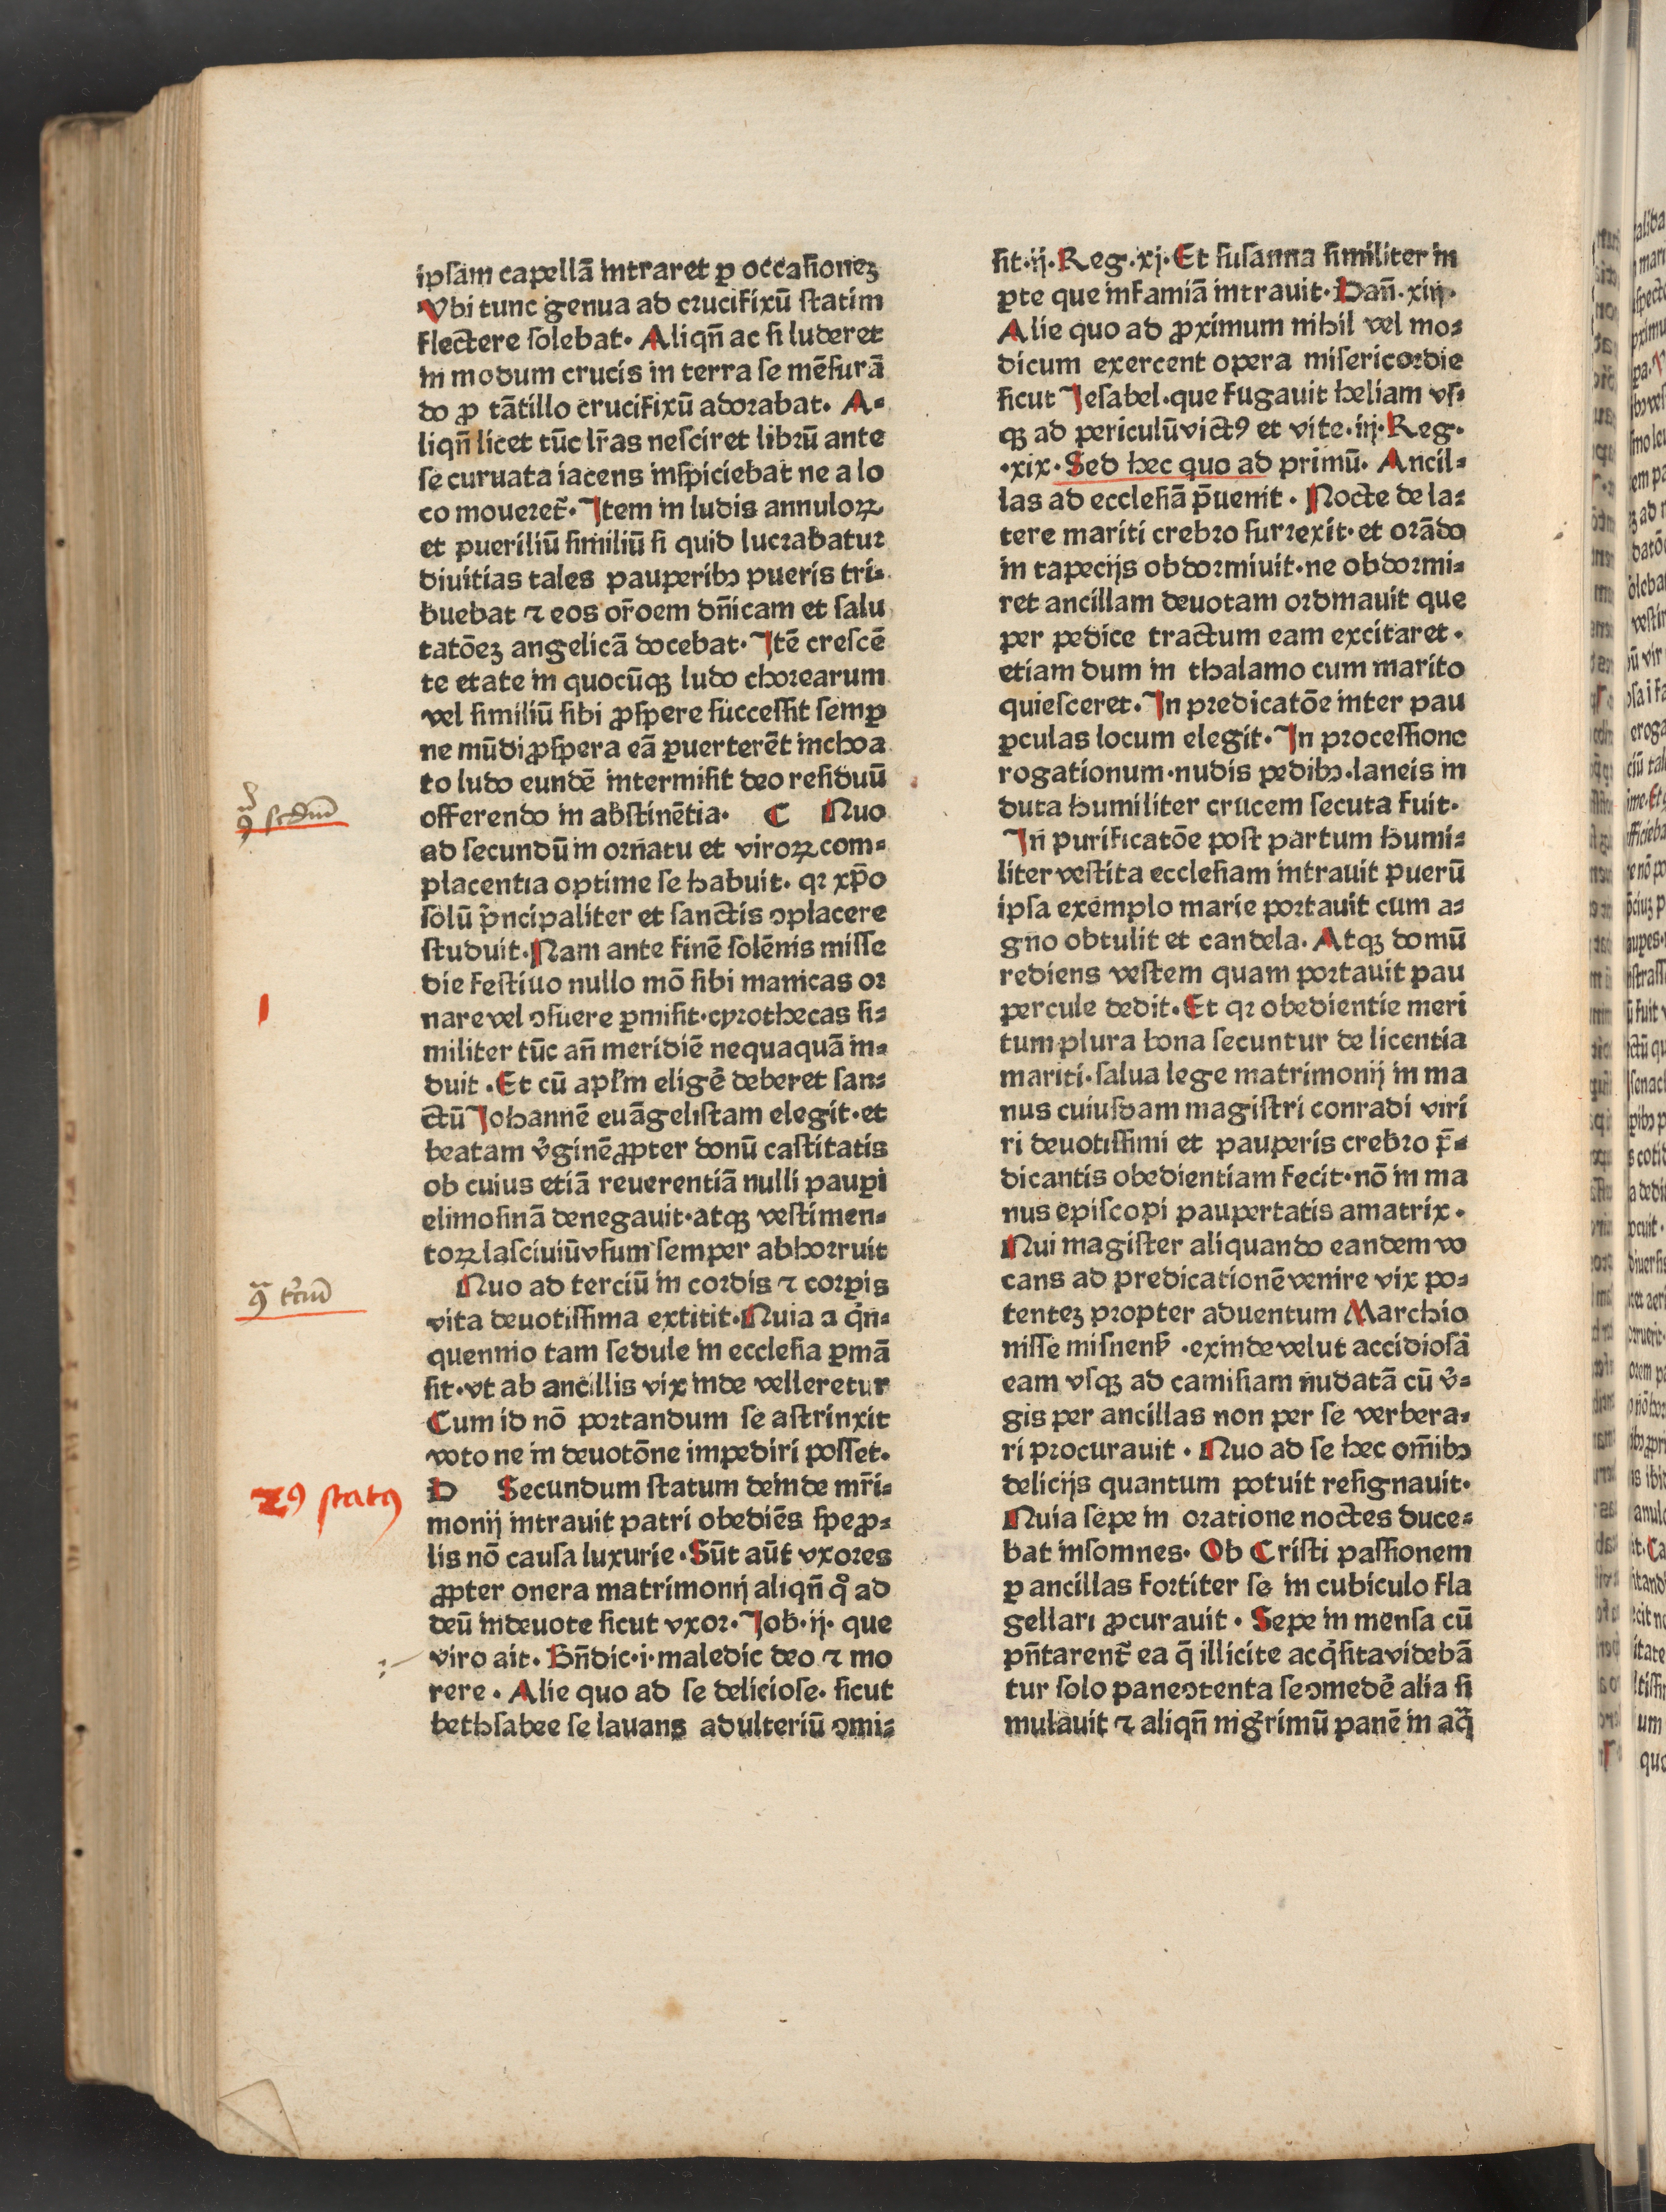 ipsam capellā intraret ꝑ occasionez
Vbi tunc genua ad crucifixū statim
flectere solebat. Aliqn̄ ac si luderet
in modum crucis in terra se mēsurā
do ꝓ tātillo crucifixū adorabat. A⸗
liqn̄ licet tūc lr̄as nesciret librū ante
se curuata iacens inspiciebat ne a lo
co moueret̄. Item in ludis annuloꝝ
et pueriliū similiū si quid lucrabatur
diuitias tales pauperibꝫ pueris tri⸗
buebat ⁊ eos or̄oem dn̄icam et salu
tatōez angelicā docebat. Itē crescē
te etate in quocūqꝫ ludo chorearum
vel similiū sibi ꝓspere successit semꝑ
ne mūdi ꝓspera eā ꝑuerterēt inchoa
to ludo eundē intermisit deo residuū
offerendo in abstinētia. C Quo
ad secundū in ornatu et viroꝝ com⸗
placentia optime se habuit. qꝛ xp̄o
solū p̄ncipaliter et sanctis ꝯplacere
studuit. Nam ante finē solēnis misse
die festiuo nullo mō sibi manicas or
nare vel ꝯsuere ꝑmisit. cyrothecas si⸗
militer tūc an̄ meridiē nequaquā in⸗
duit. Et cū apl̄m eligē deberet san⸗
ctū Johannē euāgelistam elegit. et
beatam v̓ginē ꝓpter donū castitatis
ob cuius etiā reuerentiā nulli pauꝑi
elimosinā denegauit. atqꝫ vestimen⸗
toꝝ lasciuiū vsum semper abhorruit
Quo ad terciū in cordis ⁊ corꝑis
vita deuotissima extitit. Quia a q̓n⸗
quennio tam sedule in ecclesia ꝑmā
sit. vt ab ancillis vix inde velleretur
Cum id nō portandum se astrinxit
voto ne in deuotōne impediri posset.
D Secundum statum deinde mr̄i⸗
monij intrauit patri obediēs spe ꝓ⸗
lis nō causa luxurie. Sūt aūt vxores
ꝓpter onera matrimonij aliqn̄ qͦ ad
deū indeuote sicut vxor. Job. ij. que
viro ait. Bn̄dic. i. maledic deo ⁊ mo
rere. Alie quo ad se deliciose. sicut
bethsabee se lauans adulteriū ꝯmi⸗
sit. ij. Reg. xj. Et susanna similiter in
ꝑte que infamiā intrauit. Dan̄. xiij.
Alie quo ad ꝓximum nihil vel mo⸗
dicum exercent opera misericordie
sicut Jesabel. que fugauit heliam vs⸗
qꝫ ad periculū victꝰ et vite. iij. Reg.
.xix. Sed hec quo ad primū. Ancil⸗
las ad ecclesiā p̄uenit. Nocte de la⸗
tere mariti crebro surrexit. et orādo
in tapecijs obdormiuit. ne obdormi⸗
ret ancillam deuotam ordinauit que
per pedice tractum eam excitaret.
etiam dum in thalamo cum marito
quiesceret. In predicatōe inter pau
ꝑculas locum elegit. In processione
rogationum. nudis pedibꝫ. laneis in
duta humiliter crucem secuta fuit.
In purificatōe post partum humi⸗
liter vestita ecclesiam intrauit puerū
ipsa exemplo marie portauit cum a⸗
gno obtulit et candela. Atqꝫ domū
rediens vestem quam portauit pau
percule dedit. Et qꝛ obedientie meri
tum plura bona secuntur de licentia
mariti. salua lege matrimonij in ma
nus cuiusdam magistri conradi viri
ri deuotissimi et pauperis crebro p̄⸗
dicantis obedientiam fecit. nō in ma
nus episcopi paupertatis amatrix.
Qui magister aliquando eandem vo
cans ad predicationē venire vix po⸗
tentez propter aduentum Marchio
nisse misnenꝭ. exinde velut accidiosā
eam vsqꝫ ad camisiam nudatā cū v̓⸗
gis per ancillas non per se verbera⸗
ri procurauit. Quo ad se hec om̄ibꝫ
delicijs quantum potuit resignauit.
Quia sepe in oratione noctes duce⸗
bat insomnes. Ob Cristi passionem
ꝑ ancillas fortiter se in cubiculo fla
gellari ꝓcurauit. Sepe in mensa cū
pn̄tarent̄ ea q̄ illicite acq̓sita videbā
tur solo pane ꝯtenta se ꝯmedē alia si
mulauit ⁊ aliqn̄ nigrimū panē in aq̄
2ꝰ statꝰ